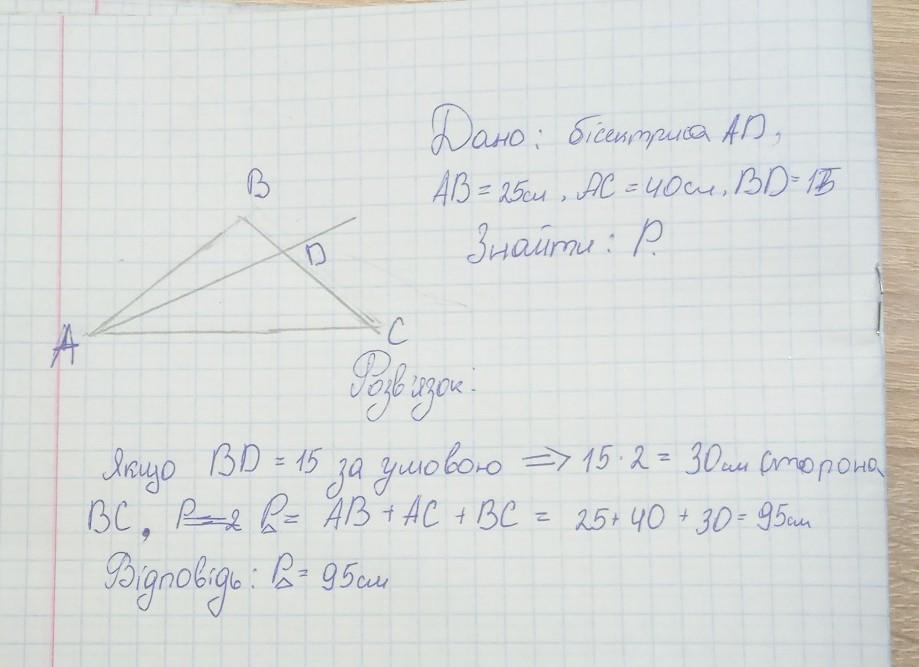 Дано: бісектриса AD,
AB = 25см, AC = 40см, BD = 15
Знайти: P.
B
D
A
C
Розв'язок:
Якщо BD = 15 за умовою => 15·2 = 30см сторона
BC, P△ = AB + AC + BC = 25 + 40 + 30 = 95см
Відповідь: P△ = 95см